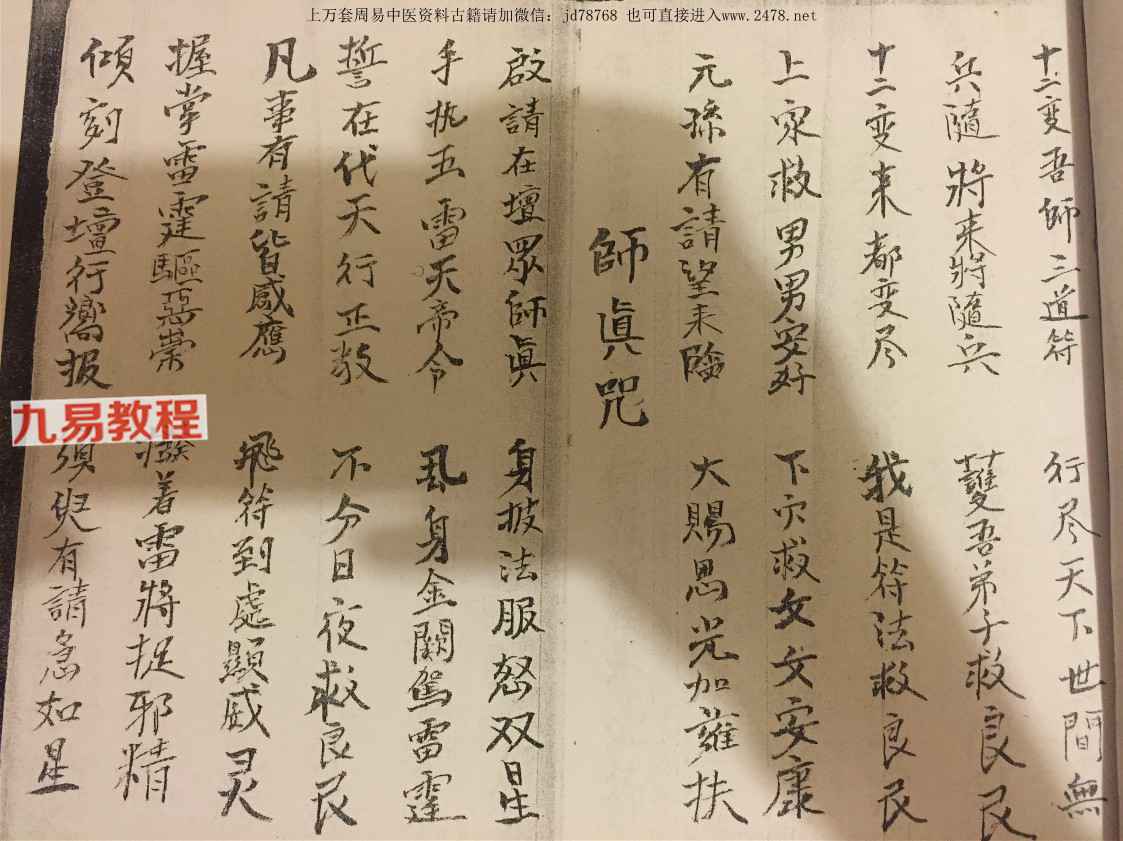 上万套周易中医资料古籍请加微信：jd78768 也可直接进入www.2478.net
十二变吾師三道符 行尽天下世間無
兵隨將来將隨兵 護吾弟子救良民
十二变来都变尽 我是符法救良民
上家救男男安好 下穴救女女安康
元孫有請望来臨 大賜恩光加雍扶
師眞咒
啟請在壇眾師眞 身披法服怒双星
手执五雷天帝令 身金闕駕雷霆
誓在代天行正教 不分日夜救良民
凡事有請皆感應 飛符到處顯威灵
握掌雷霆驅惡祟 着雷將捉邪精
傾刻登壇行嚮报 須臾有請急如星
九易教程